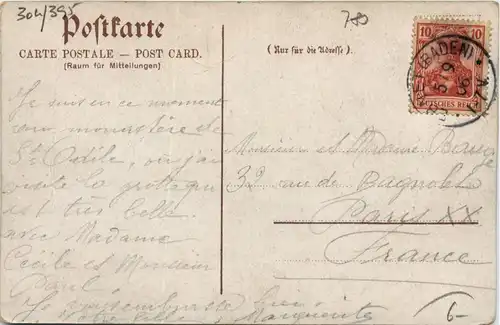 304/395
Postkarte
780
CARTE POSTALE — POST CARD.
(Raum für Mitteilungen)
(Nur für die Adresse).
10 10
(BADEN)
5 9
DEUTSCHES REICH
Je suis en ce moment
au monastère de
Ste Odile, où j'ai
visité la grotte qui
est très belle
avec Madame
Cécile et Monsieur
Paul.
Je vous embrasse bien
Marguerite
Monsieur et Madame
32 rue de Bagnolet
Paris XX
France
6-